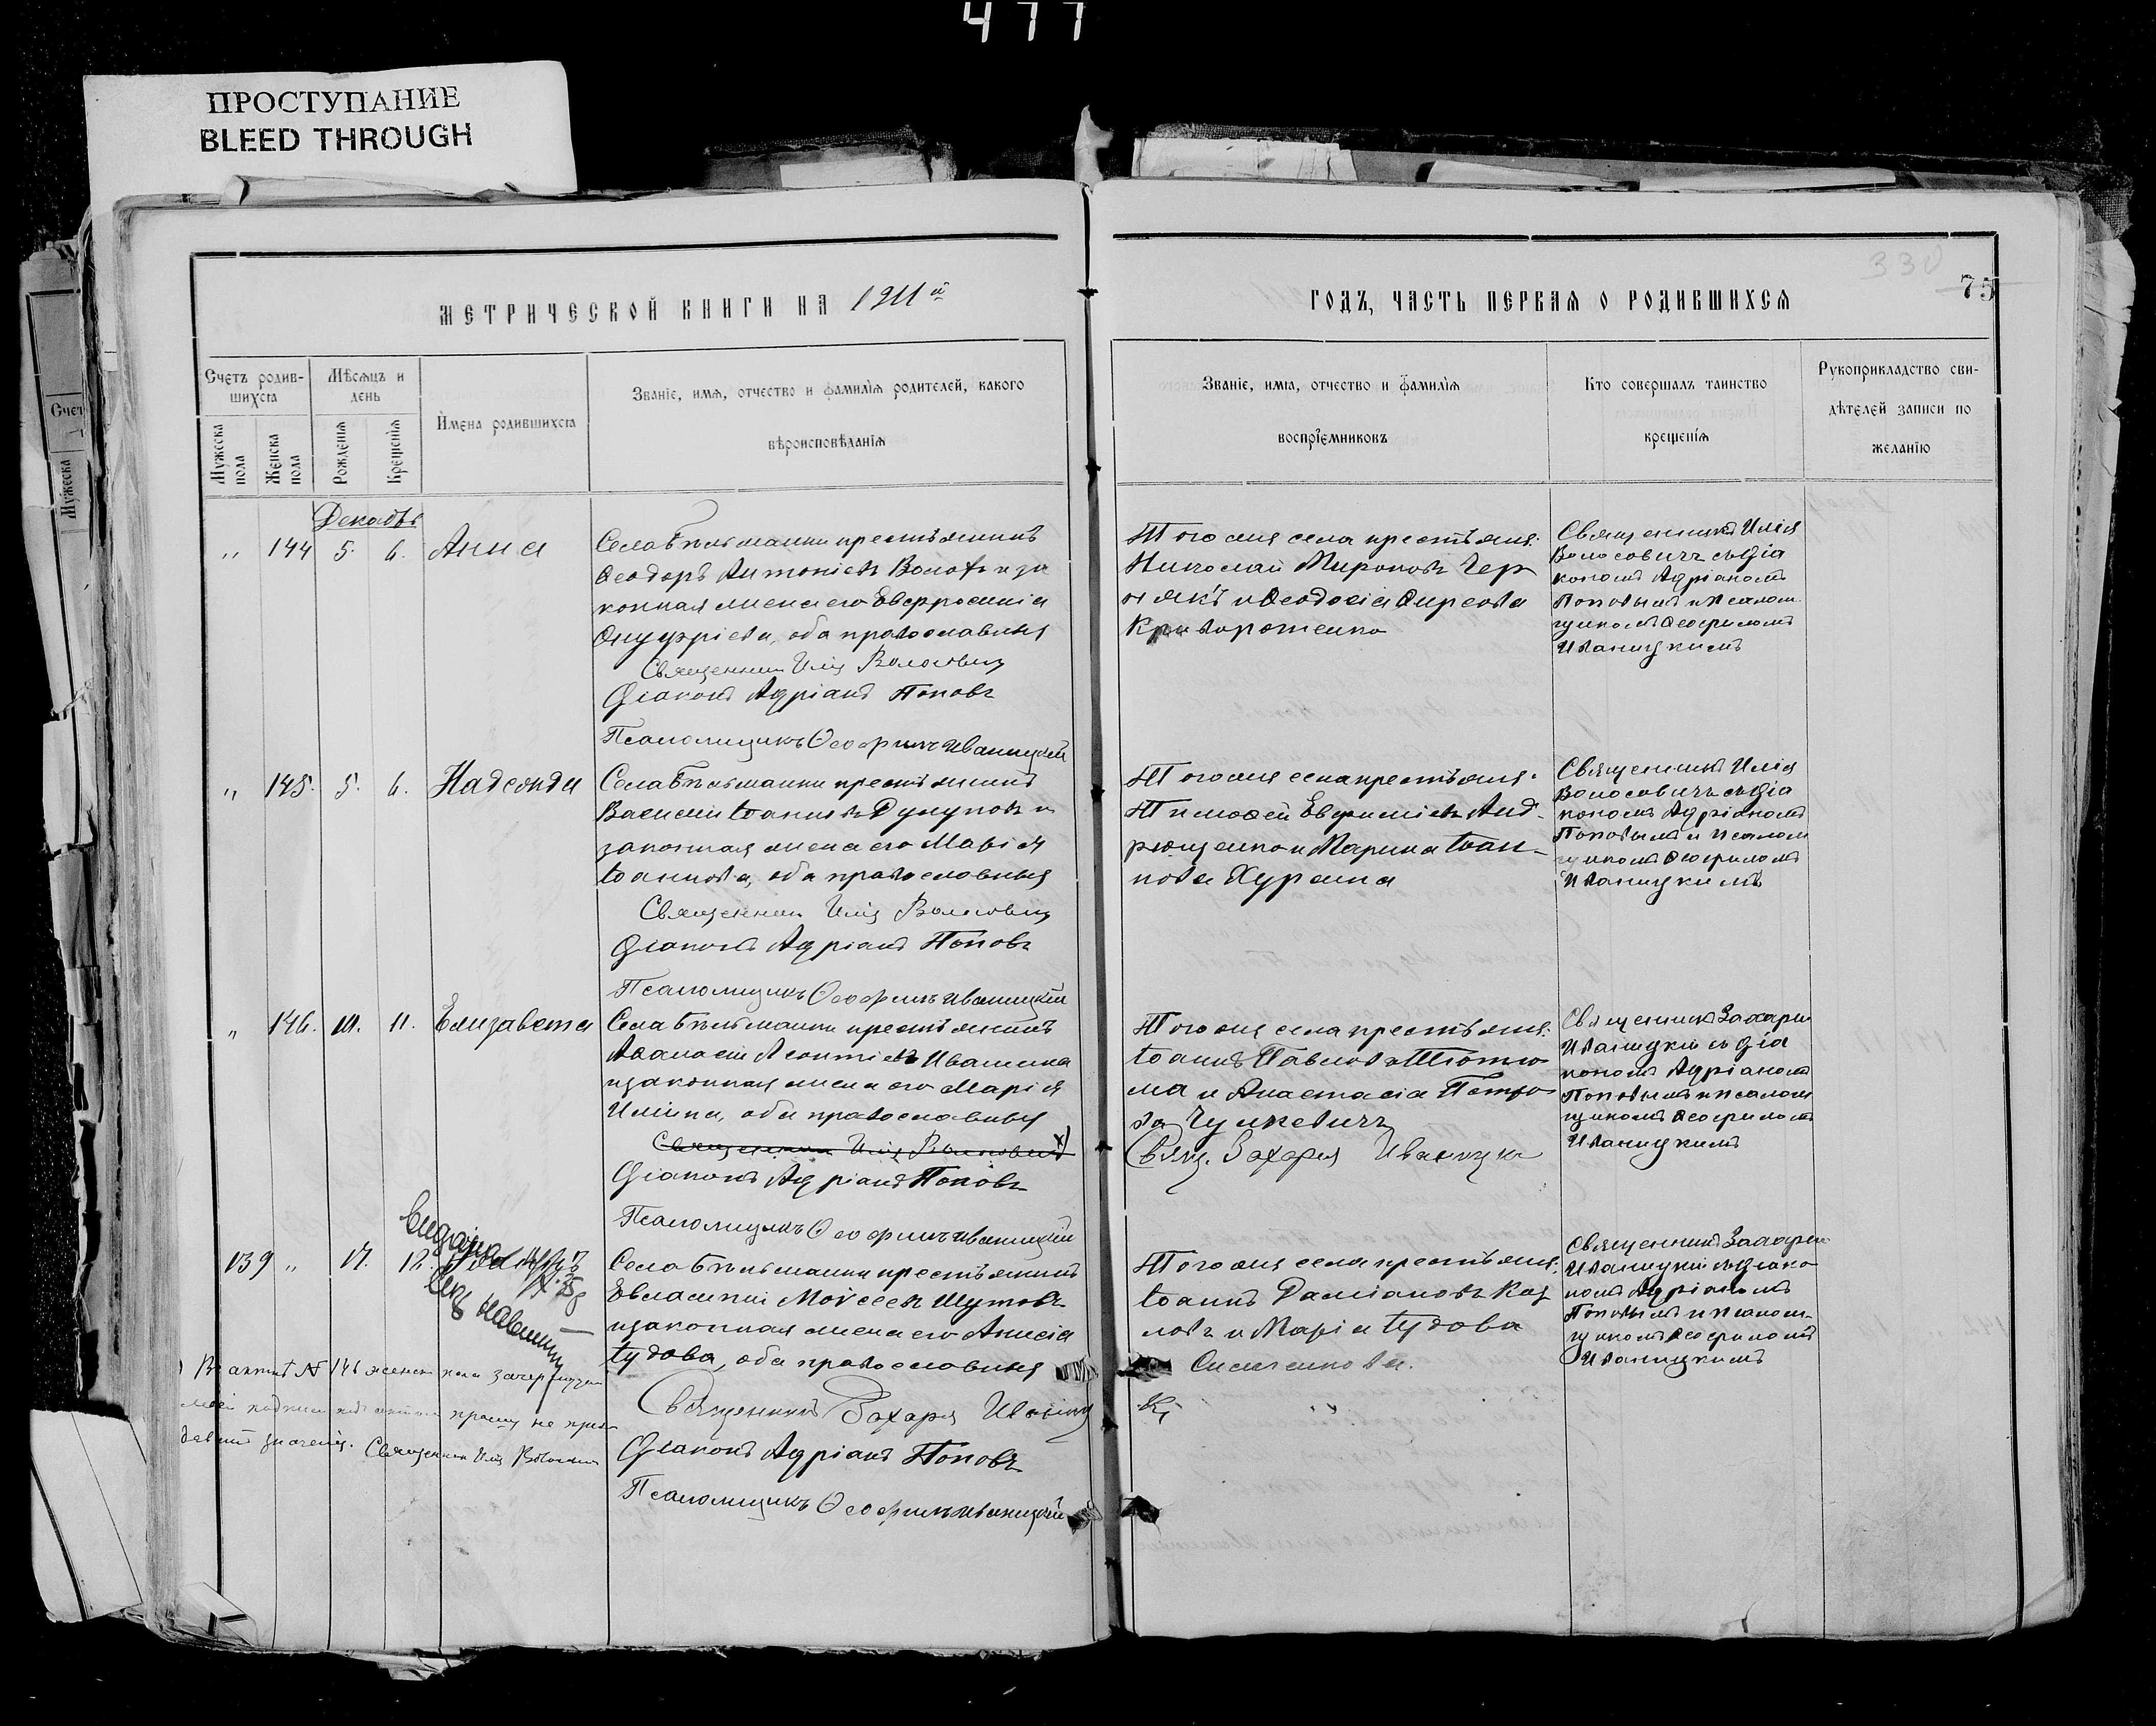 477
ПРОСТУПАНИЕ
BLEED THROUGH
330
75
МЕТРИЧЕСКОЙ КНИГИ НА 1911й
ГОДЪ, ЧАСТЬ ПЕРВАЯ О РОДИВШИХСЯ
Счетъ родив-
шихся
Мужеска пола
Женска пола
Мѣсяцъ и
день
Рожденія
Крещенія
Имена родившихся
Званіе, имя, отчество и фамилія родителей, какого
вѣроисповѣданія
Званіе, имя, отчество и фамилія
воспріемниковъ
Кто совершалъ таинство
крещенія
Рукоприкладство сви-
дѣтелей записи по
желанію
Счет
Мужеска
Декабрь
" 144 5. 6. Анна
Села крестьянинъ
Ѳеодоръ Антоніевъ и за
конная жена его Евфросинія
Онуфріева, оба православныя
Священникъ Илія Волосовичъ
Діаконъ Адріанъ Поповъ
Псаломщикъ Ѳеофилъ Иваницкій
Того же села крестьяне:
Николай Мироновъ Чер
някъ и Ѳеодосія Фирсова
Криворотенко
Священникъ Илія
Волосовичъ съ діа
кономъ Адріаномъ
Поповымъ и псалом
щикомъ Ѳеофиломъ
Иваницкимъ
" 145. 5. 6. Надежда
Села крестьянинъ
Василій Іоанновъ и
законная жена его Марія
Іоаннова, оба православныя
Священникъ Илія Волосовичъ
Діаконъ Адріанъ Поповъ
Псаломщикъ Ѳеофилъ Иваницкій
Того же села крестьяне:
Тимоѳей Евфиміевъ Анд-
рющенко и Марина Іоан-
нова
Священникъ Илія
Волосовичъ съ діа
кономъ Адріаномъ
Поповымъ и псалом
щикомъ Ѳеофиломъ
Иваницкимъ
" 146. 10. 11. Елизавета
Села крестьянинъ
Аѳанасій Леонтіевъ Ивашина
и законная жена его Марія
Иліина, оба православныя
Священникъ Илія Волосовичъ х)
Діаконъ Адріанъ Поповъ
Псаломщикъ Ѳеофилъ Иваницкій
Того же села крестьяне:
Іоаннъ Павловъ
ма и Анастасія Петро
ва
Свящ. Захарія Иваницкій
Священникъ Захарія
Иваницкій съ діа
кономъ Адріаномъ
Поповымъ и псалом
щикомъ Ѳеофиломъ
Иваницкимъ
139 " 17. 18.
Села крестьянинъ
Евлампій Моѵсеевъ Шутовъ
и законная жена его Анисія
Іудова, оба православныя
Священникъ Захарія
Діаконъ Адріанъ Поповъ
Псаломщикъ Ѳеофилъ Иваницкій
Того же села крестьяне:
Іоаннъ Даміановъ Коз
ловъ и Марія Іудова
Симченкова.
Священникъ Захарія
Иваницкій съ діако
номъ Адріаномъ
Поповымъ и псалом-
щикомъ Ѳеофиломъ
Иваницкимъ
Въ актѣ № 146 женск пола зачеркнутой
моей подписи подъ актомъ прошу не при-
давать значенія. Священникъ Илія Волосовичъ